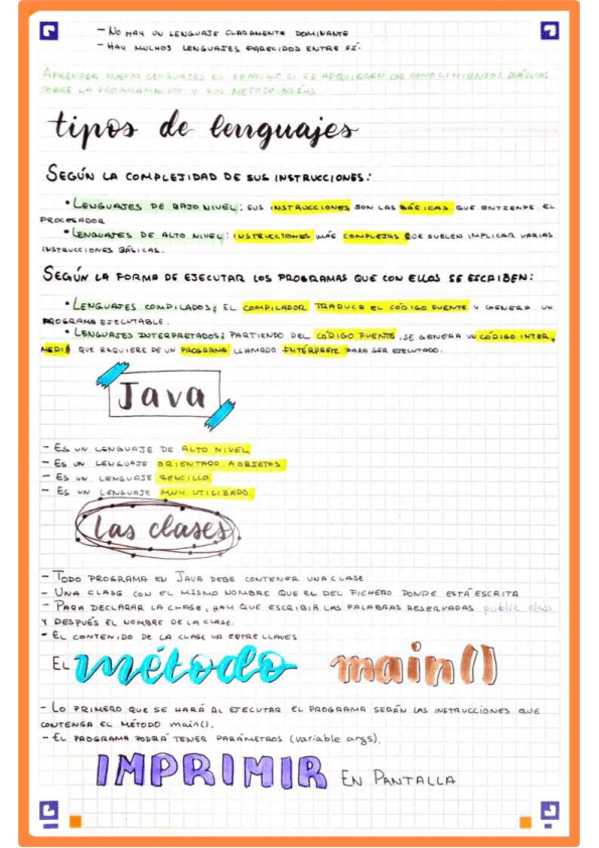 - No hay un lenguaje claramente dominante
- Hay muchos lenguajes parecidos entre sí.
Aprender nuevos lenguajes es sencillo si se adquieren los conocimientos básicos
sobre la programación y sus metodologías
tipos de lenguajes
Según la complejidad de sus instrucciones:
• Lenguajes de bajo nivel: sus instrucciones son las básicas que entiende el
procesador
• Lenguajes de alto nivel: instrucciones más complejas que suelen implicar varias
instrucciones básicas.
Según la forma de ejecutar los programas que con ellos se escriben:
• Lenguajes compilados: el compilador traduce el código fuente y genera un
programa ejecutable.
• Lenguajes interpretados: partiendo del código fuente, se genera un código inter,
medio que requiere de un programa llamado intérprete para ser ejecutado.
Java
- Es un lenguaje de alto nivel
- Es un lenguaje orientado a objetos
- Es un lenguaje sencillo
- Es un lenguaje muy utilizado.
las clases
- Todo programa en Java debe contener una clase
- Una clase con el mismo nombre que el del fichero donde está escrita
- Para declarar la clase, hay que escribir las palabras reservadas public class
y después el nombre de la clase.
- El contenido de la clase va entre llaves
El método main()
- Lo primero que se hará al ejecutar el programa serán las instrucciones que
contenga el método main().
- El programa podrá tener parámetros (variable args).
IMPRIMIR en pantalla